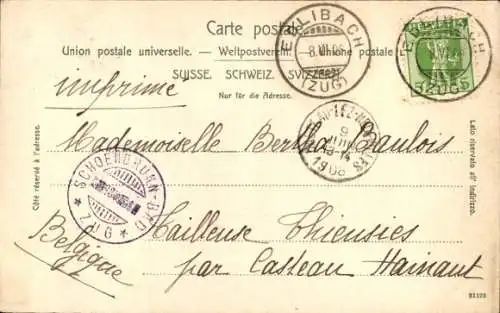 Carte postale.
Union postale universelle. — Weltpostverein. — Unione postale
SUISSE. SCHWEIZ. SVIZZERA.
Nur für die Adresse.
Côté réservé à l'adresse.
Lato riservato all' indirizzo.
EDLIBACH
(ZUG)
8.VI.
EDLIBACH
(ZUG)
5 5
imprimé
Mademoiselle Bertha Baulois
9
1908
SCHOENBRUNN-BAD
ZUG
Tailleuse Thieusies
Belgique
par Casteau Hainaut